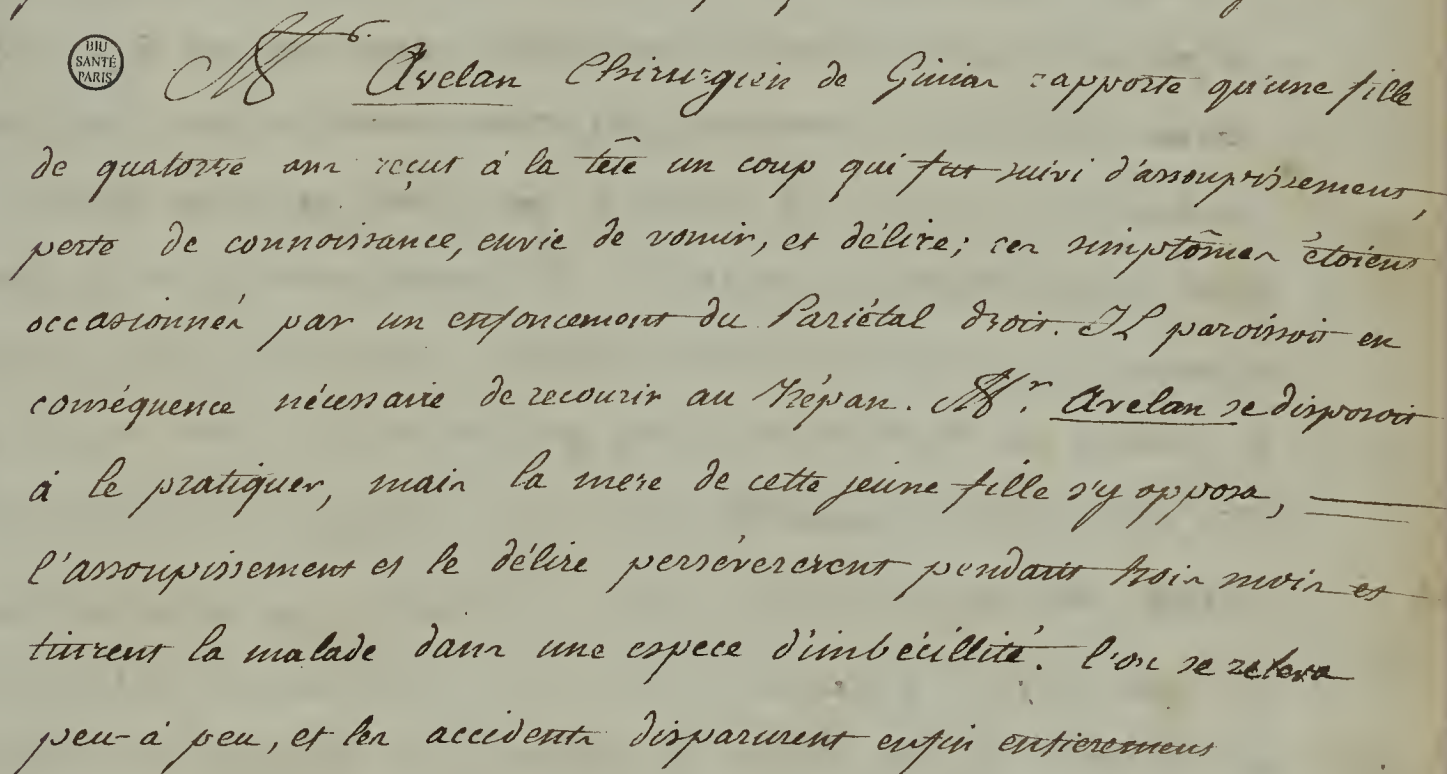 BIU
SANTÉ
PARIS
Mr. Avelan Chirurgien de Gimar rapporte qu'une fille
de quatorze ans reçut à la tête un coup qui fut suivi d'assoupissement,
perte de connoissance, envie de vomir, et délire; ces simptômes étoient
occasionnés par un enfoncement du Pariétal droit. Il paroissoit en
conséquence nécessaire de recourir au trépan. Mr. Avelan se disposoit
à le pratiquer, mais la mere de cette jeune fille s'y opposa,
l'assoupissement et le délire persévérerent pendant trois mois et
tinrent la malade dans une espece d'imbécillité. l'os se releva
peu-à peu, et les accidents disparurent enfin entierement